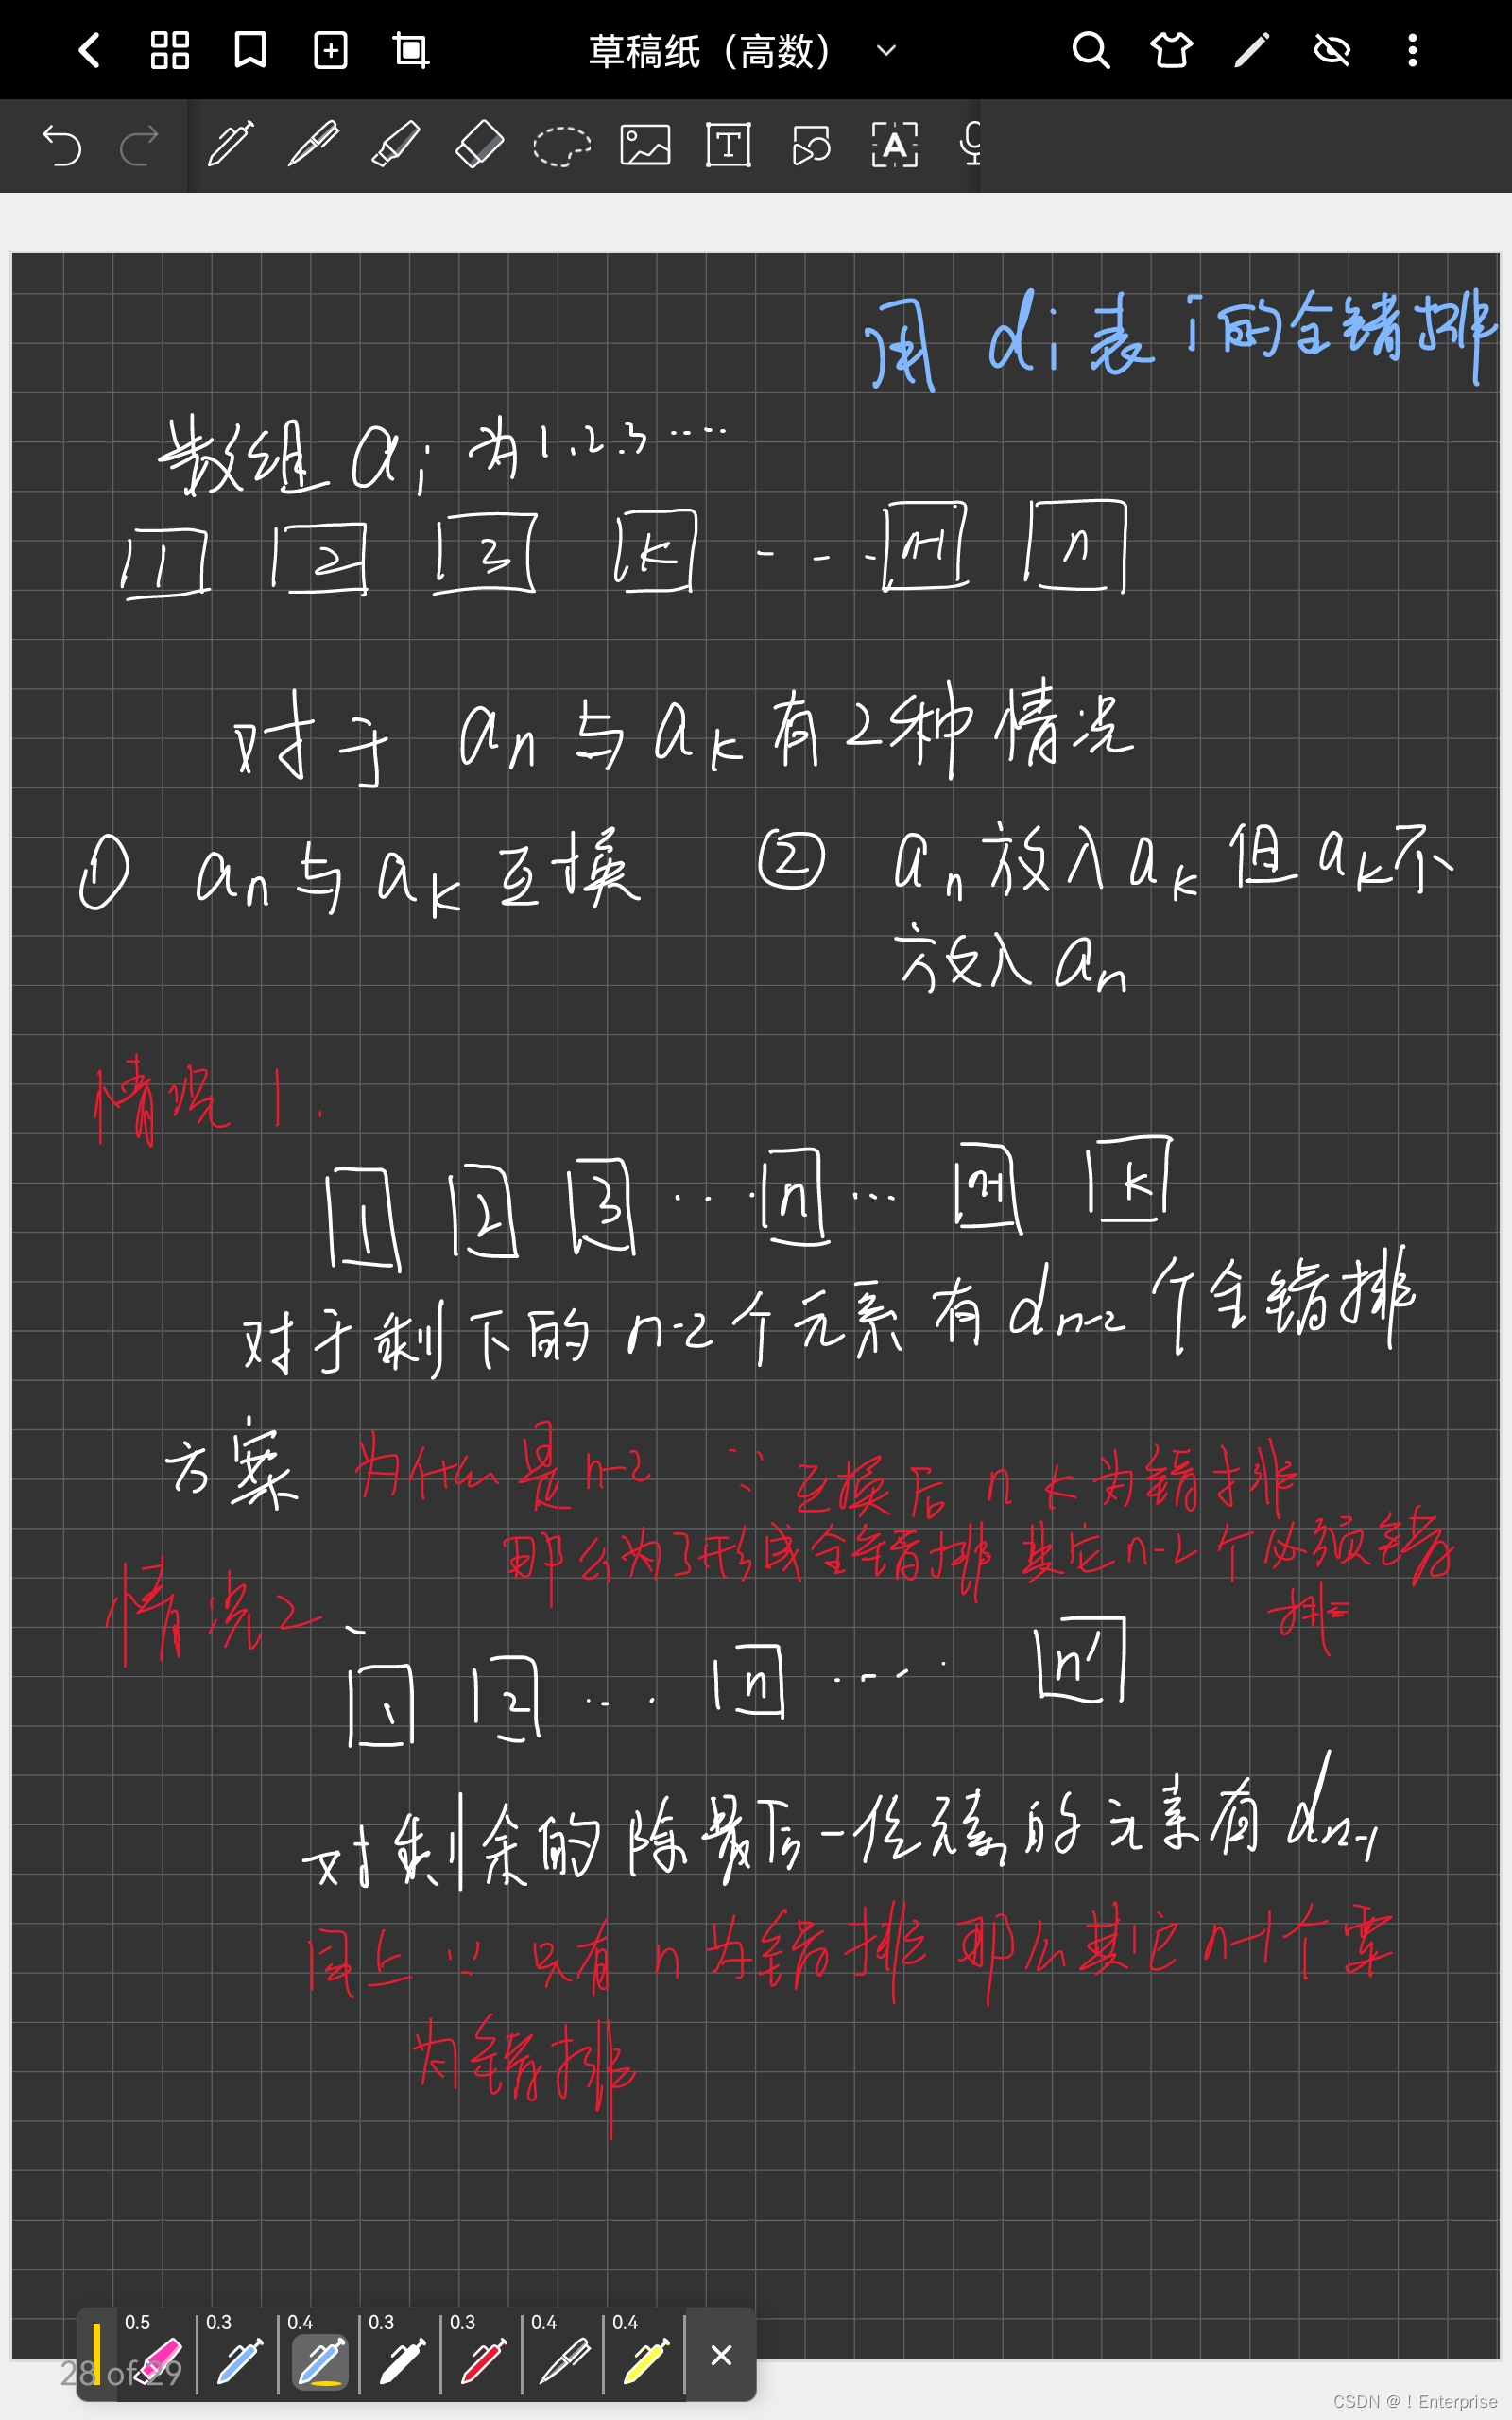 草稿纸（高数）
用 di 表 i 的全错排
数组 ai 为 1.2.3 ……
1 2 3 k - - - n-1 n
对于 an 与 ak 有2种情况
① an 与 ak 互换 ② an 放入 ak 但 ak 不
放入 an
情况 1.
1 2 3 ... n ... n-1 k
对于剩下的 n-2 个元系有 dn-2 个全错排
方案 为什么是 n-2 ∵ 互换后 n k 为错排
那么为了形成全错排 其它 n-2 个必须错
排
情况2、
1 2 ... n .... n'
对剩余的除最后一位元素的元素有 dn-1
同上 ∵ 只有 n 为错排 那么其它 n-1 个要
为错排
0.5 0.3 0.4 0.3 0.3 0.4 0.4
28 of 29
CSDN @！Enterprise